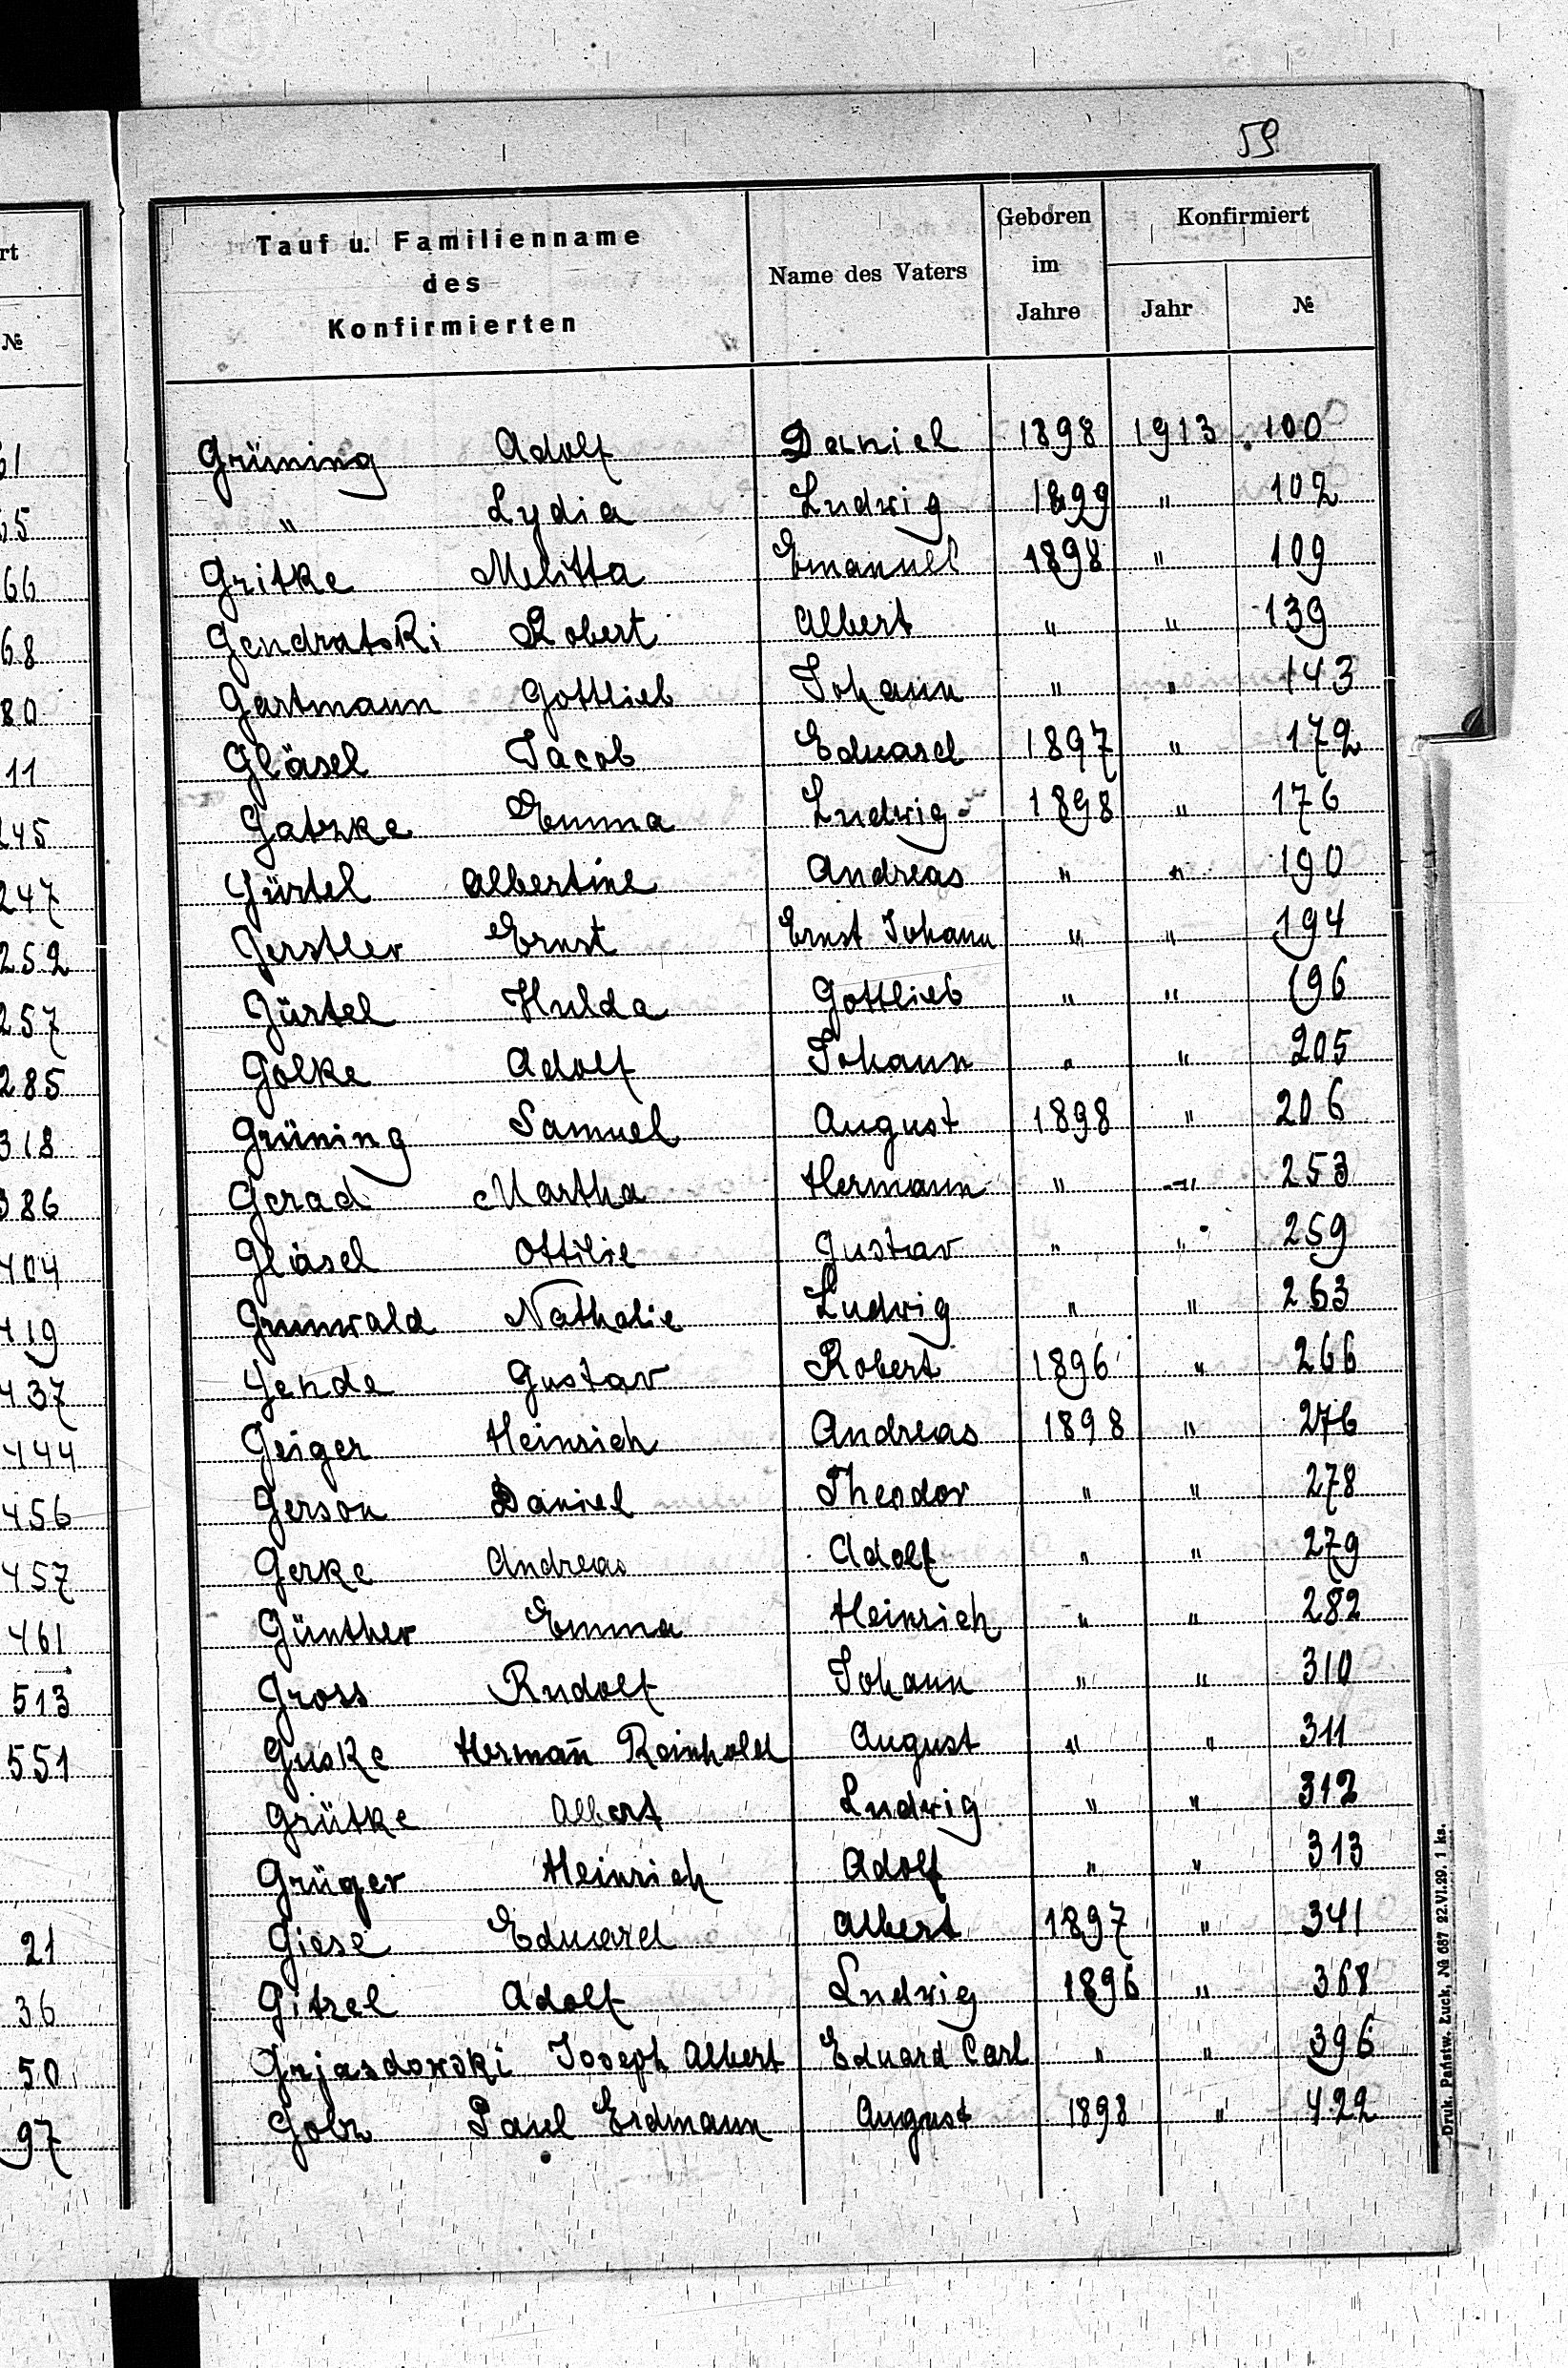 59
Tauf u. Familienname des Konfirmierten | Name des Vaters | Geboren im Jahre | Konfirmiert Jahr | №
Grüning Adolf Daniel 1898 1913 100
" Lydia Ludwig 1899 " 102
Gritke Melitta Emanuel 1898 " 109
Gendratski Robert Albert " " 139
Gartmann Gottlieb Johann " " 143
Gläsel Jacob Eduard 1897 " 172
Gatzke Emma Ludwig 1898 " 176
Gürtel Albertine Andreas " " 190
Gerstler Ernst Ernst Johann " " 194
Gürtel Hulda Gottlieb " " 196
Golke Adolf Johann " " 205
Grüning Samuel August 1898 " 206
Gerad Martha Hermann " " 253
Gläsel Ottilie Gustav " " 259
Grunwald Nathalie Ludwig " " 263
Gende Gustav Robert 1896 " 266
Geiger Heinrich Andreas 1898 " 276
Gerson Daniel Theodor " " 278
Gerke Andreas Adolf " " 279
Günther Emma Heinrich " " 282
Gross Rudolf Johann " " 310
Guske Hermañ Reinhold August " " 311
Grütke Albert Ludwig " " 312
Grüger Heinrich Adolf " " 313
Giese Eduard Albert 1897 " 341
Gitzel Adolf Ludwig 1896 " 368
Grjasdowski Joseph Albert Eduard Carl " " 396
Golz Paul Erdmann August 1898 " 422
Druk. Państw. Łuck, № 687 22.VI.29. 1 ks.
rt
№
61
65
66
68
80
11
245
247
252
257
285
318
386
404
419
437
444
456
457
461
513
551
21
36
50
97